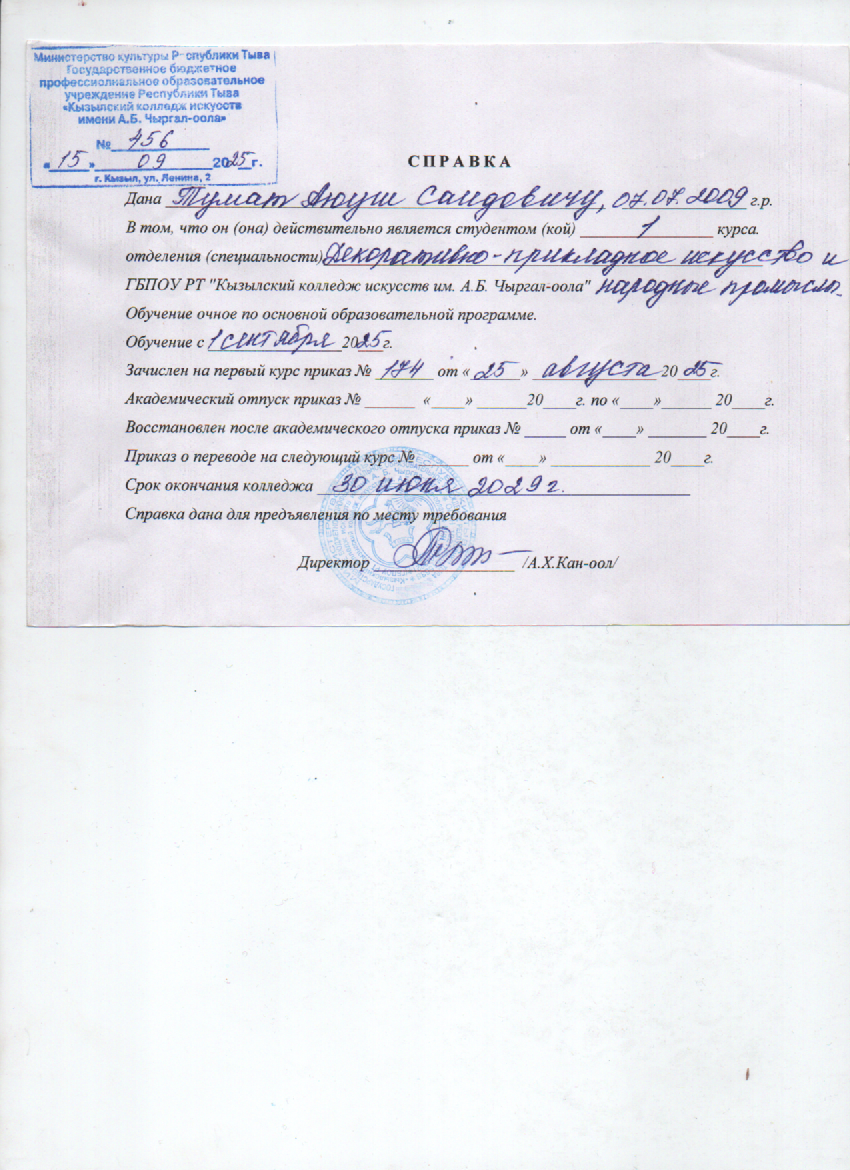 Министерство культуры Республики Тыва
Государственное бюджетное
профессиональное образовательное
учреждение Республики Тыва
«Кызылский колледж искусств
имени А.Б. Чыргал-оола»
№ 456
«15» 09 2025 г.
г. Кызыл, ул. Ленина, 2
СПРАВКА
Дана Тумат Аюуш Саидовичу, 07.07.2009 г.р.
В том, что он (она) действительно является студентом (кой) 1 курса.
отделения (специальности) Декоративно-прикладное искусство и
ГБПОУ РТ "Кызылский колледж искусств им. А.Б. Чыргал-оола" народные промыслы.
Обучение очное по основной образовательной программе.
Обучение с 1 сентября 2025г.
Зачислен на первый курс приказ № 174 от « 25 » августа 2025г.
Академический отпуск приказ № ______ «____» ______20____г. по «____»______ 20____г.
Восстановлен после академического отпуска приказ № _____ от «____» _______ 20____г.
Приказ о переводе на следующий курс № ______ от «____» ____________ 20____г.
Срок окончания колледжа 30 июня 2029 г.
Справка дана для предъявления по месту требования
Директор ________________ /А.Х.Кан-оол/